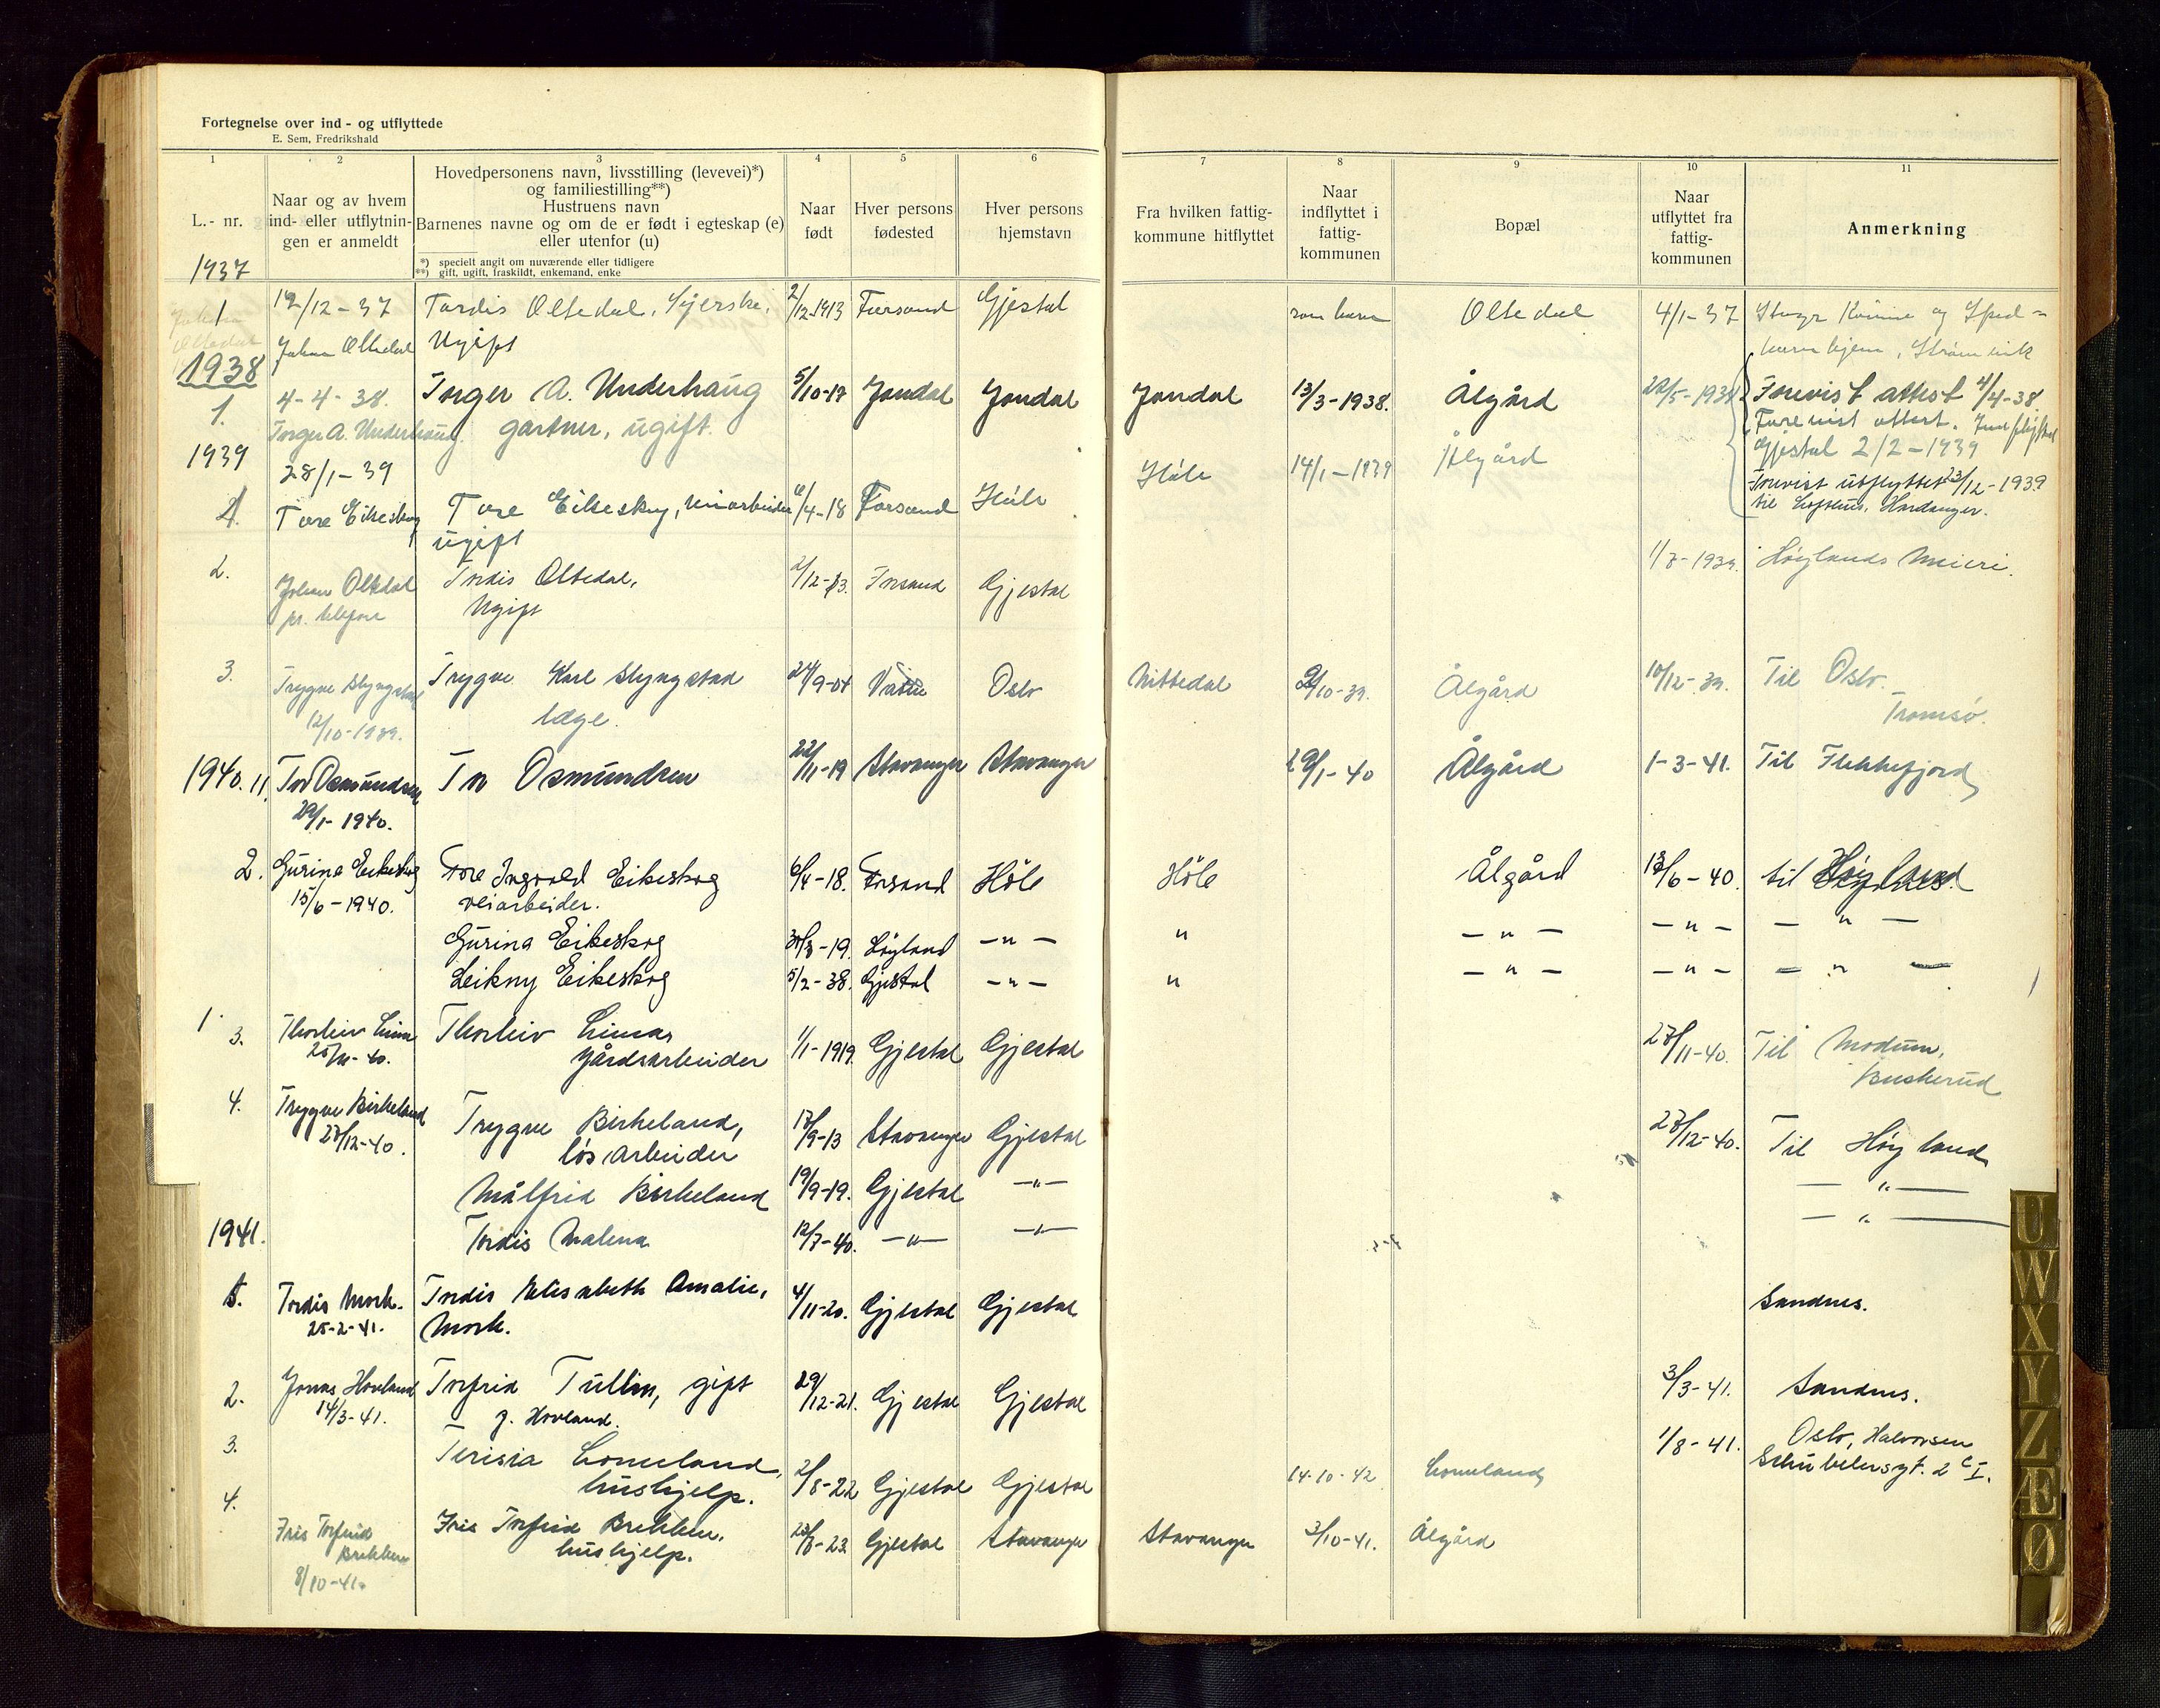 Fortegnelse over ind - og utflyttede
E. Sem, Fredrikshald
1 2 3 4 5 6 7 8 9 10 11
L.- nr.
Naar og av hvem
ind- eller utflytnin-
gen er anmeldt
Hovedpersonens navn, livsstilling (levevei)*)
og familiestilling**)
Hustruens navn
Barnenes navne og om de er født i egteskap (e)
eller utenfor (u)
*) specielt angit om nuværende eller tidligere
**) gift, ugift, fraskildt, enkemand, enke
Naar
født
Hver persons
fødested
Hver persons
hjemstavn
Fra hvilken fattig-
kommune hitflyttet
Naar
indflyttet i
fattig-
kommunen
Bopæl
Naar
utflyttet fra
fattig-
kommunen
Anmerkning
1937
1 12/12-37 Tordis Oltedal, Syerske, 2/12-1913 Forsand Gjestal Oltedal 4/1-37
Johan Oltedal Ugift
1938
1. 4-4-38. Torger A. Underhaug 5/10-17 Jondal Jondal Jondal 13/3-1938. Ålgård Forevist attest 4/4-38
Torger A. Underhaug gartner, ugift. Forevist attest.
Gjestal 2/2-1939
1939
28/1-39 Høle 14/1-1939 Ålgård Forevist utflyttet 23/12-1939
til Lofthus, Hardanger.
1. Tore Eikeskog Tore Eikeskog, veiarbeider 6/4-18 Forsand Høle
ugift
2. Johan Oltedal Tordis Oltedal, 2/12-13. Forsand Gjestal 1/7-1939. Høylands Meieri.
pr. telefon Ugift
3. Trygve Karl Slyngstad 24/9-04 Oslo Nittedal 2/10-39. Ålgård 10/12-39. Til Oslo.
12/10-1939. læge. Tromsø.
1940. 1. Tor Osmundsen Tor Osmundsen 22/11-19 Stavanger Stavanger 29/1-40 Ålgård 1-3-41. Til Flekkefjord
29/1-1940.
2. Gurina Eikeskog Tore Ingvald Eikeskog 6/4-18. Forsand Høle Høle Ålgård 13/6-40. til Høyland
15/6-1940. veiarbeider.
Gurina Eikeskog 30/3-19. Høyland -"- " -"- -"- -"-
Leikny Eikeskog 5/2-38. Gjestal -"- " -"- -"- -"-
1.
3. Thorleiv Lima Thorleiv Limas 1/1-1919. Gjestal Gjestal 27/11-40. Til Modum,
25/11-40. gårdsarbeider Buskerud
4. Trygve Birkeland Trygve Birkeland, 17/9-13 Stavanger Gjestal 27/12-40. Til Høyland
27/12-40. løsarbeider
Målfrid Birkeland 19/9-19. Gjestal -"- -"-
Tordis Malena 12/7-40. -"- -"- -"-
1941.
1. Tordis Mork. Tordis Elisabeth Amalie, 4/11-20. Gjestal Gjestal Sandnes.
25-2-41. Mork.
2. Jonas Hovland Torfrid Tullin, gift 29/12-21. Gjestal Gjestal 3/3-41. Sandnes.
14/3-41. J. Hovland.
3. Terisia Lomeland, 2/8-22 Gjestal Gjestal 14-10-42 Lomeland 1/8-41. Oslo, Halvorsen
hushjelp. Schübelersgt. 2 C I.
4. Iris Torfrid Brekken Iris Torfrid Brekken, 23 Gjestal Stavanger Stavanger 3/10-41. Ålgård
8/10-41. hushjelp.
U
W
X
Y
Z
Æ
Ø